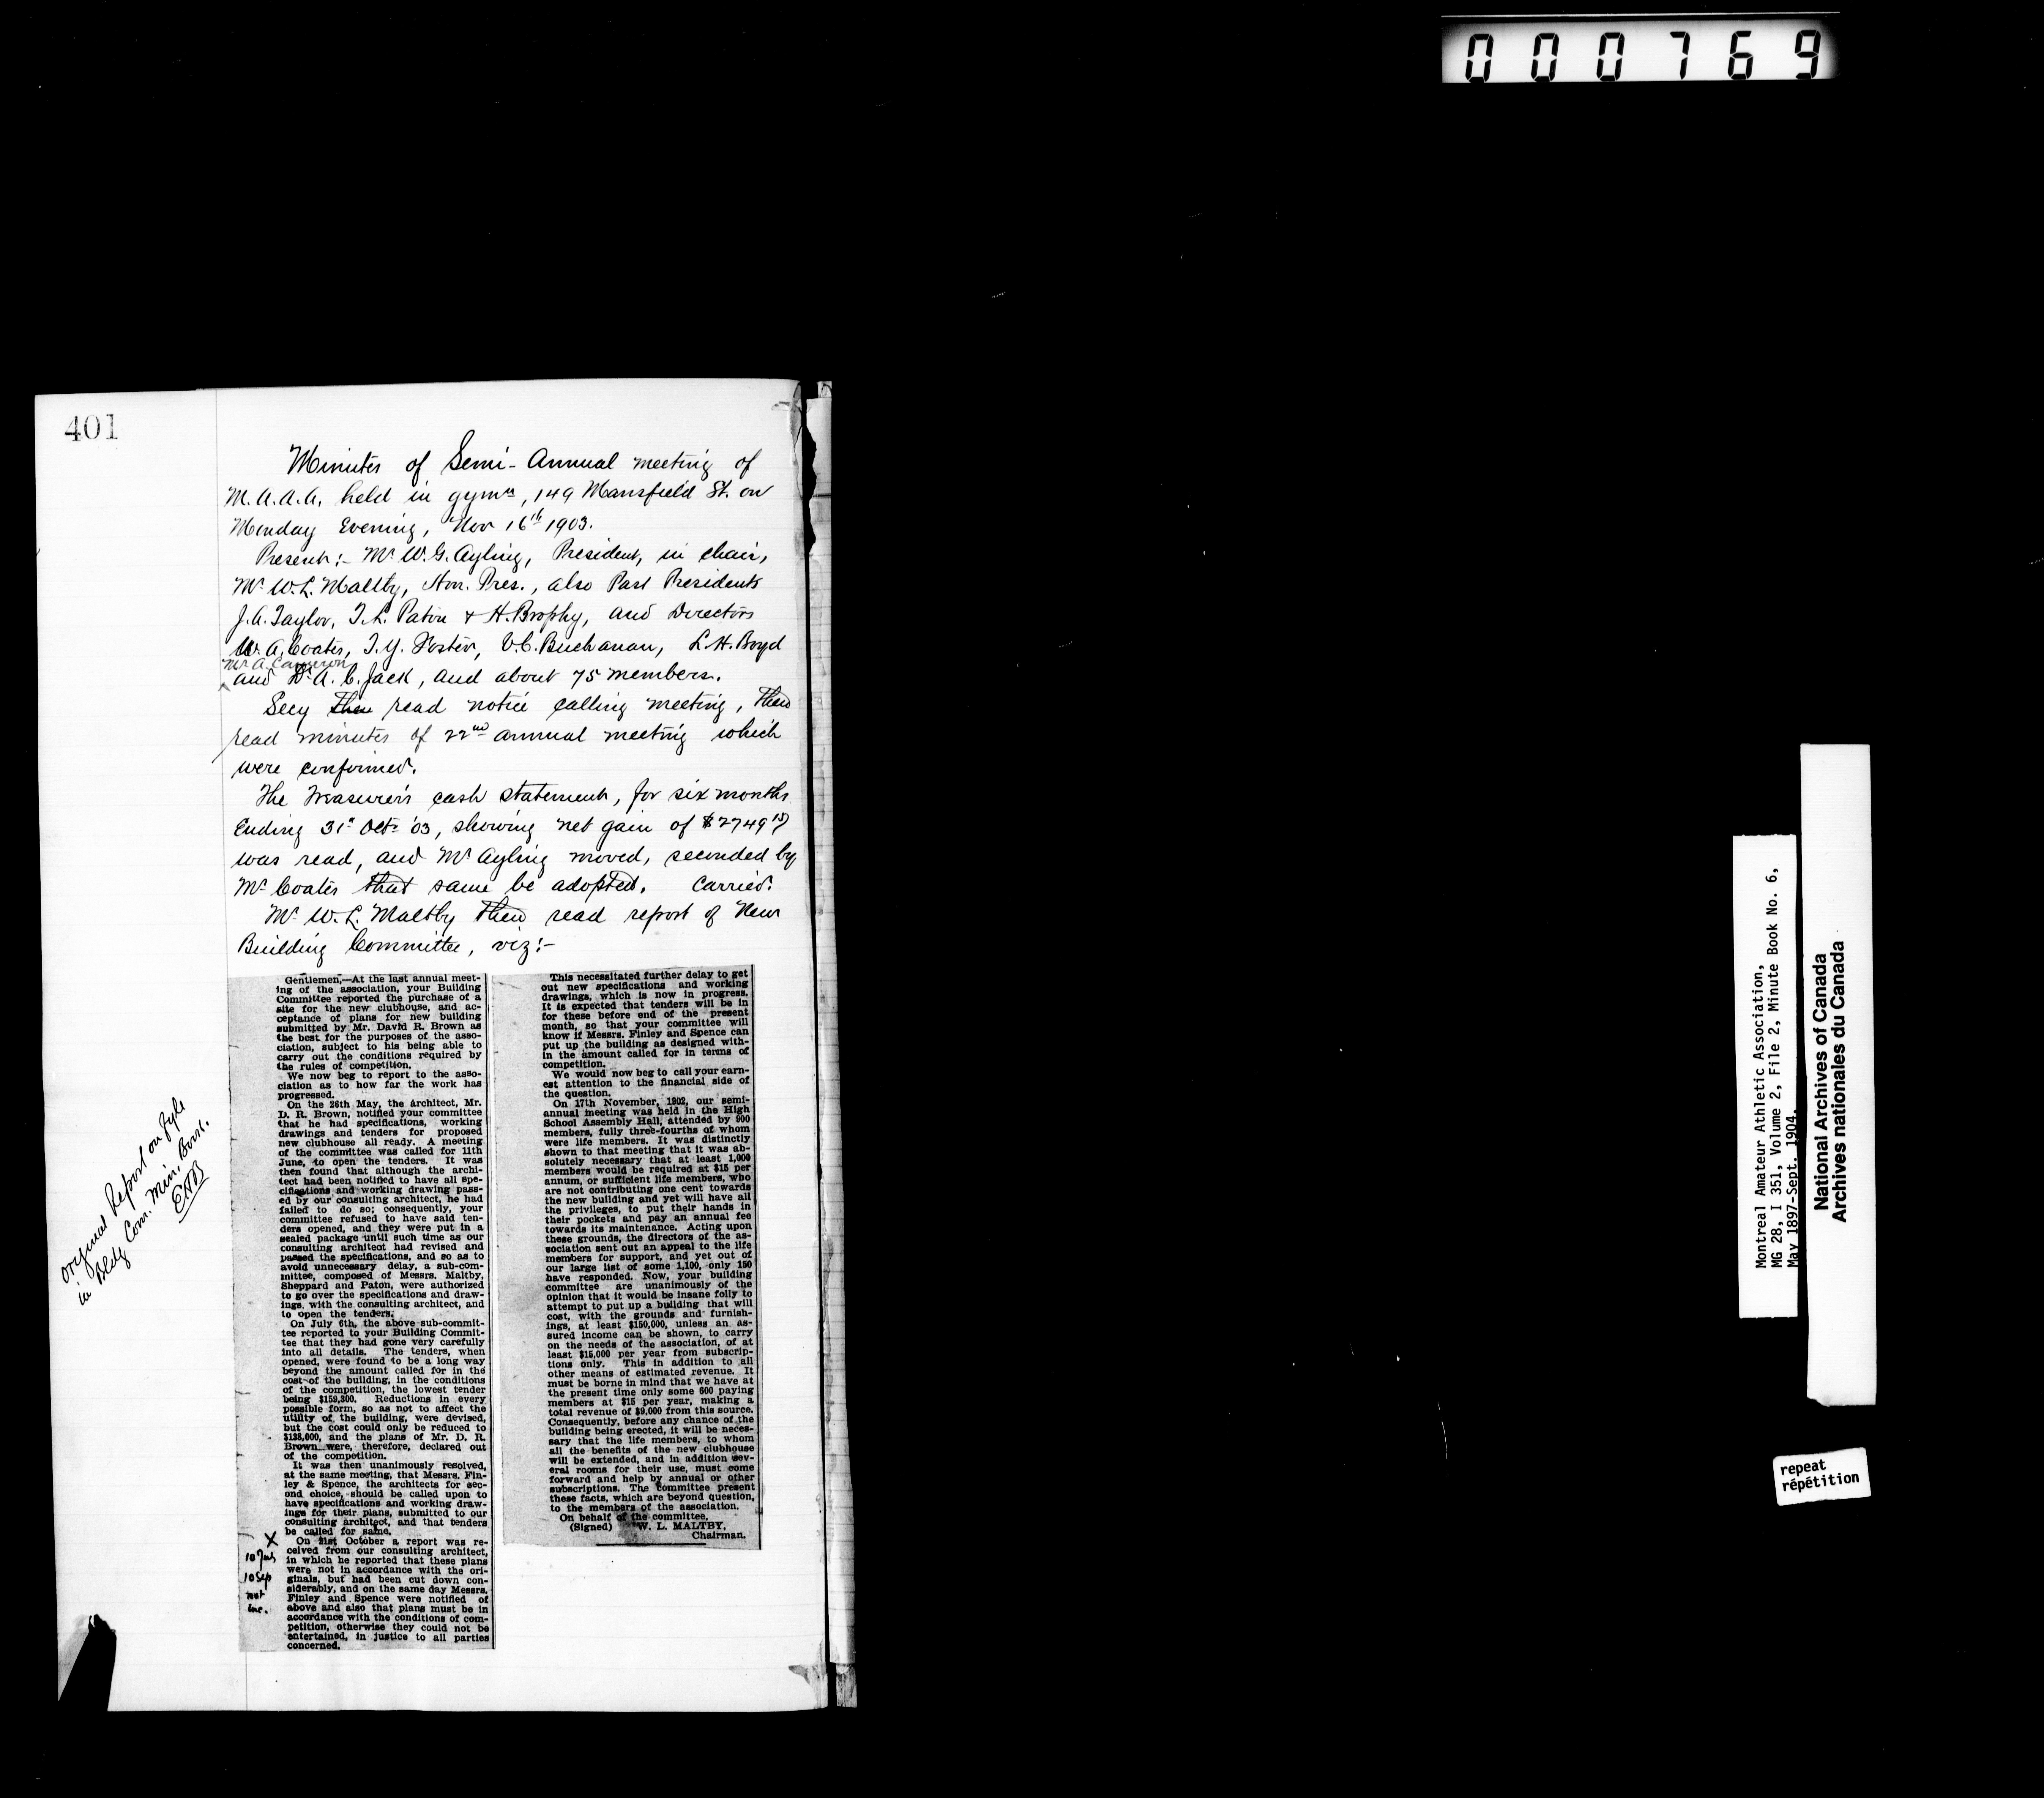 000769
401
Minutes of Semi-Annual meeting of
M.A.A.A. held in gymn, 149 Mansfield St. on
Monday Evening, Nov 16th 1903.
Present:- Mr W.G. Ayling, President, in chair,
Mr W.L. Maltby, Hon. Pres., also Past Presidents
J.A. Taylor, T.L. Paton & H. Brophy, and Directors
W.A. Coates, T.Y. Foster, V.C. Buchanan, L.H. Boyd
Mr A. Cameron
and Dr A.C. Jack, and about 75 members.
Secy then read notice calling meeting, then
read minutes of 22nd annual meeting which
were confirmed.
The Treasurer's cash statement, for six months
Ending 31st Octr '03, showing net gain of $2749
was read, and Mr Ayling moved, seconded by
Mr Coates that same be adopted. Carried.
Mr W.L. Maltby then read report of New
Building Committee, viz:-
Gentlemen,—At the last annual meet-
ing of the association, your Building
Committee reported the purchase of a
site for the new clubhouse, and ac-
ceptance of plans for new building
submitted by Mr. David R. Brown as
the best for the purposes of the asso-
ciation, subject to his being able to
carry out the conditions required by
the rules of competition.
We now beg to report to the asso-
ciation as to how far the work has
progressed.
On the 26th May, the architect, Mr.
D. R. Brown, notified your committee
that he had specifications, working
drawings and tenders for proposed
new clubhouse all ready. A meeting
of the committee was called for 11th
June, to open the tenders. It was
then found that although the archi-
tect had been notified to have all spe-
cifications and working drawing pass-
ed by our consulting architect, he had
failed to do so; consequently, your
committee refused to have said ten-
ders opened, and they were put in a
sealed package until such time as our
consulting architect had revised and
passed the specifications, and so as to
avoid unnecessary delay, a sub-com-
mittee, composed of Messrs. Maltby,
Sheppard and Paton, were authorized
to go over the specifications and draw-
ings, with the consulting architect, and
to open the tenders.
On July 6th, the above sub-commit-
tee reported to your Building Commit-
tee that they had gone very carefully
into all details. The tenders, when
opened, were found to be a long way
beyond the amount called for in the
cost of the building, in the conditions
of the competition, the lowest tender
being $159,300. Reductions in every
possible form, so as not to affect the
utility of the building, were devised,
but the cost could only be reduced to
$138,000, and the plans of Mr. D. R.
Brown were, therefore, declared out
of the competition.
It was then unanimously resolved,
at the same meeting, that Messrs. Fin-
ley & Spence, the architects for sec-
ond choice, should be called upon to
have specifications and working draw-
ings for their plans, submitted to our
consulting architect, and that tenders
be called for same.
On 21st October a report was re-
ceived from our consulting architect,
in which he reported that these plans
were not in accordance with the ori-
ginals, but had been cut down con-
siderably, and on the same day Messrs.
Finley and Spence were notified of
above and also that plans must be in
accordance with the conditions of com-
petition, otherwise they could not be
entertained, in justice to all parties
concerned.
This necessitated further delay to get
out new specifications and working
drawings, which is now in progress.
It is expected that tenders will be in
for these before end of the present
month, so that your committee will
know if Messrs. Finley and Spence can
put up the building as designed with-
in the amount called for in terms of
competition.
We would now beg to call your earn-
est attention to the financial side of
the question.
On 17th November, 1902, our semi-
annual meeting was held in the High
School Assembly Hall, attended by 900
members, fully three-fourths of whom
were life members. It was distinctly
shown to that meeting that it was ab-
solutely necessary that at least 1,000
members would be required at $15 per
annum, or sufficient life members, who
are not contributing one cent towards
the new building and yet will have all
the privileges, to put their hands in
their pockets and pay an annual fee
towards its maintenance. Acting upon
these grounds, the directors of the as-
sociation sent out an appeal to the life
members for support, and yet out of
our large list of some 1,100, only 150
have responded. Now, your building
committee are unanimously of the
opinion that it would be insane folly to
attempt to put up a building that will
cost, with the grounds and furnish-
ings, at least $150,000, unless an as-
sured income can be shown, to carry
on the needs of the association, of at
least $15,000 per year from subscrip-
tions only. This in addition to all
other means of estimated revenue. It
must be borne in mind that we have at
the present time only some 600 paying
members at $15 per year, making a
total revenue of $9,000 from this source.
Consequently, before any chance of the
building being erected, it will be neces-
sary that the life members, to whom
all the benefits of the new clubhouse
will be extended, and in addition sev-
eral rooms for their use, must come
forward and help by annual or other
subscriptions. The committee present
these facts, which are beyond question,
to the members of the association.
On behalf of the committee,
(Signed) W. L. MALTBY,
Chairman.
original Report on fyle
in Bldg Com. Min. Book.
X
10 July
10 Sep
not
inc.
Montreal Amateur Athletic Association,
MG 28, I 351, Volume 2, File 2, Minute Book No. 6,
May 1897-Sept. 1904.
National Archives of Canada
Archives nationales du Canada
repeat
répétition